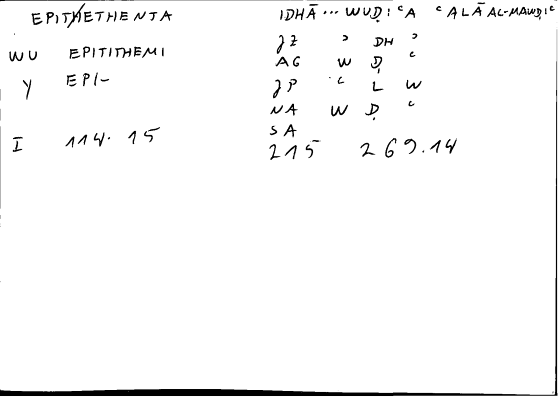 EPITHETHENTA IDHĀ ... WUḌIʿA ʿALĀ AL-MAWḌIʿ
JZ ʾ DH ʾ
WU EPITITHEMI AG W Ḍ ʿ
Y EPI- JP ʿ L W
NA W Ḍ ʿ
SA
I 114.15 215 269.14